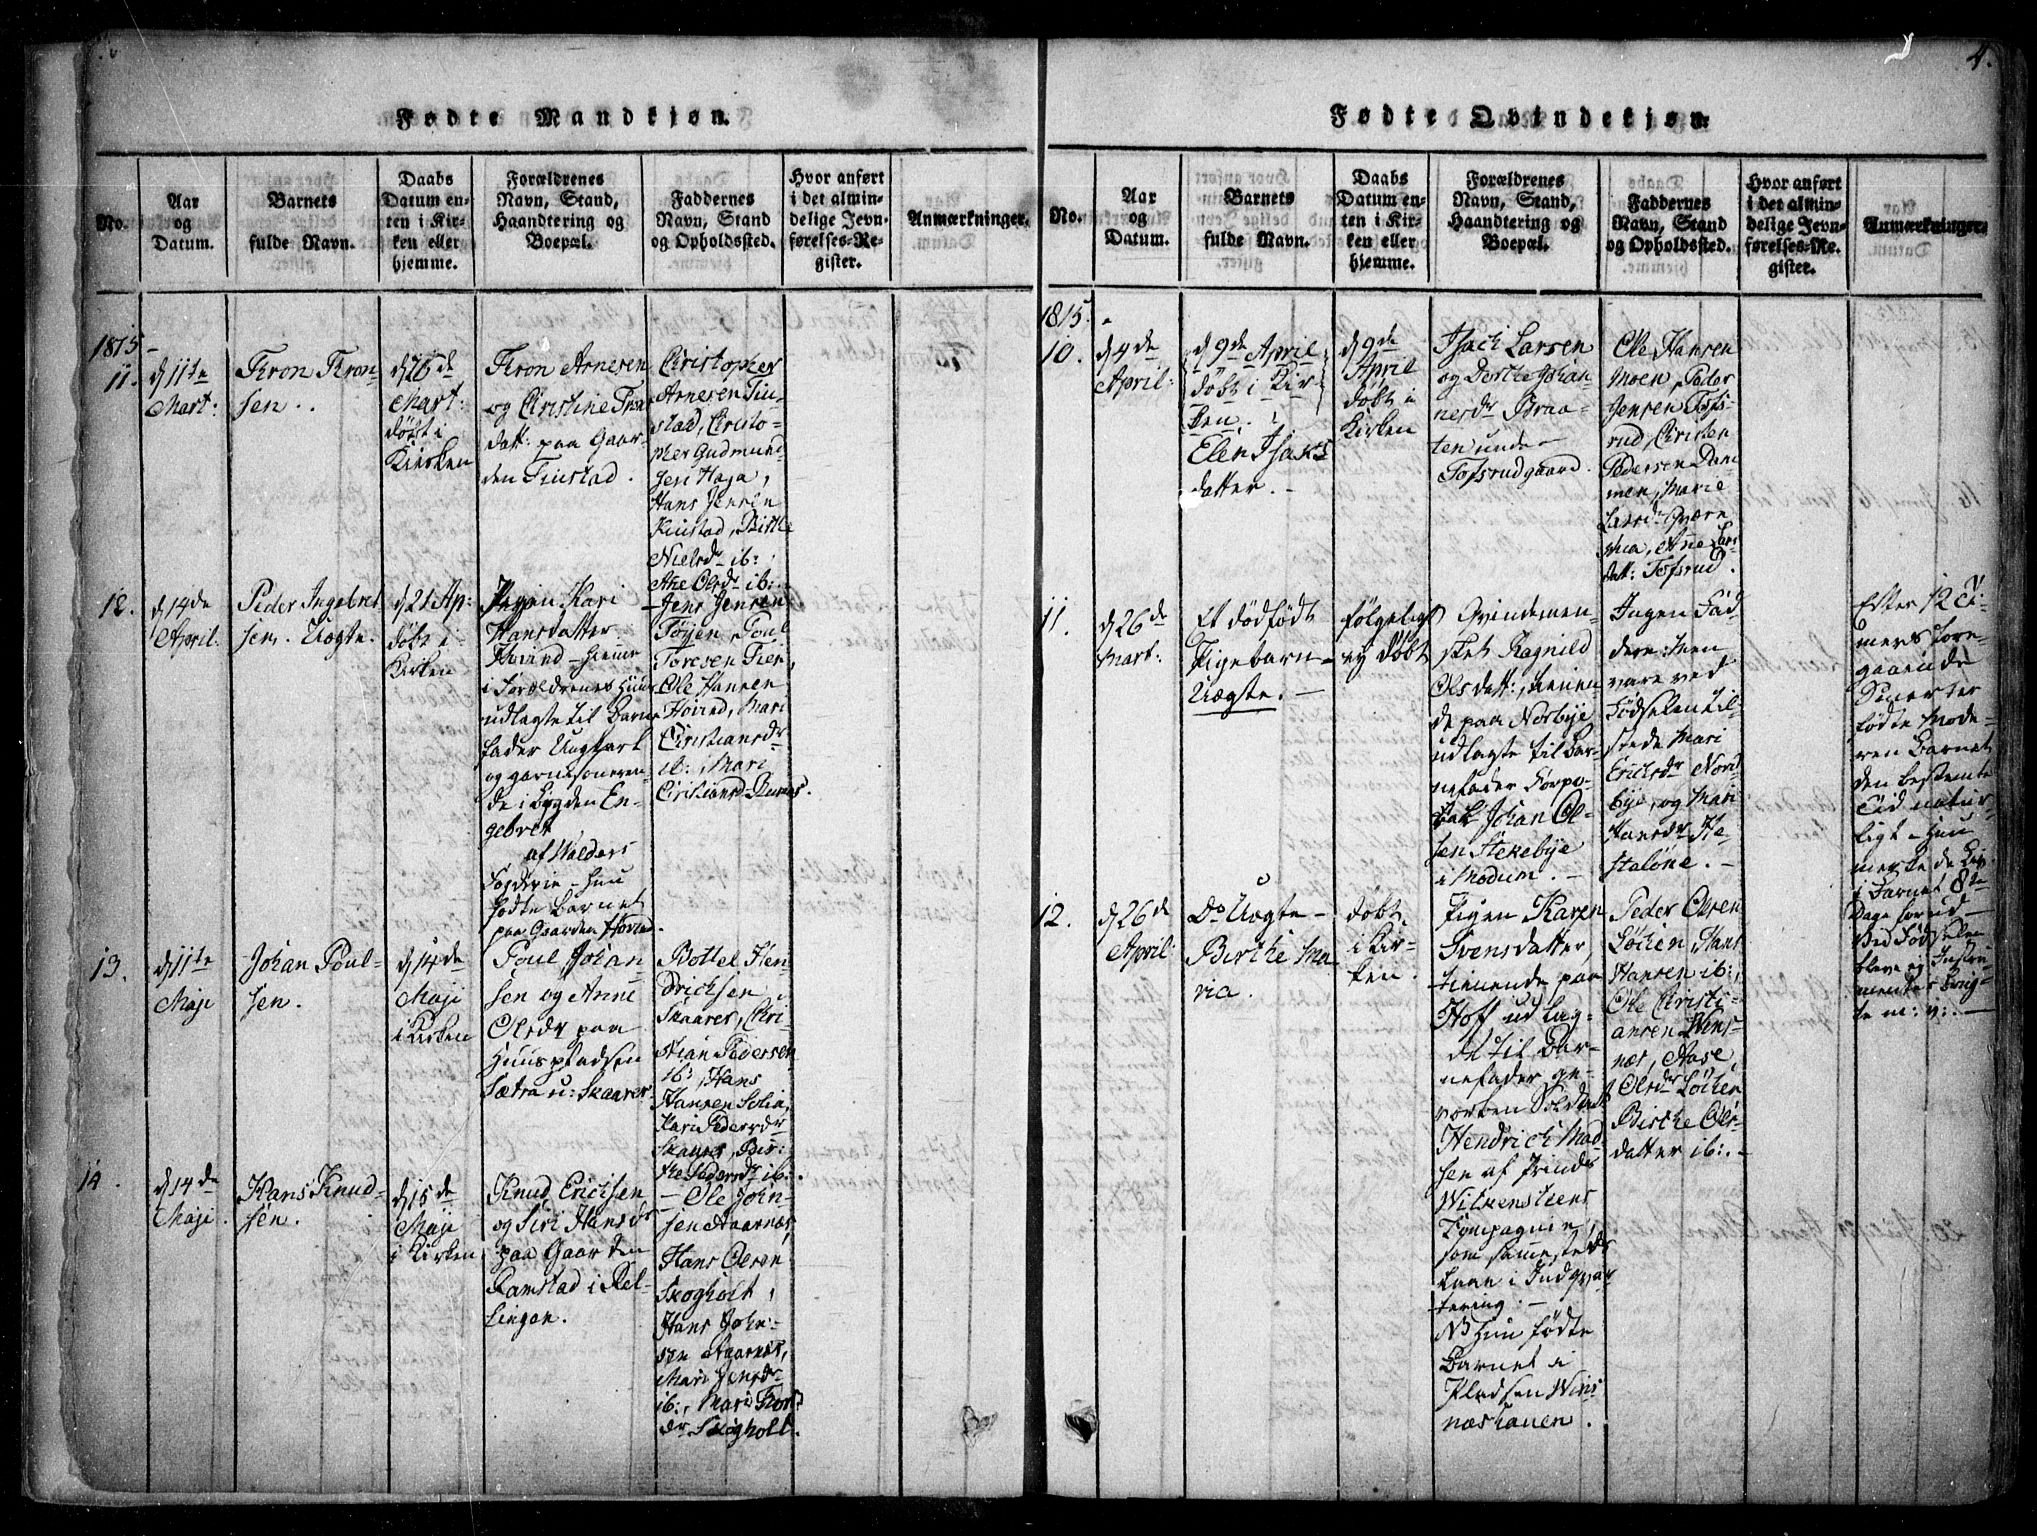 4.
Fødte Mandkjøn.
No.
Aar
og
Datum.
Barnets
fulde Navn.
Daabs
Datum en-
ten i Kir-
ken eller
hjemme.
Forældrenes
Navn, Stand,
Haandtering og
Boepæl.
Faddernes
Navn, Stand
og Opholdssted.
Hvor anført
i det almin-
delige Jevn-
førelses-Re-
gister.
Anmærkninger.
1815
11.
d 11te
Mart:
Thron Thron-
sen.
d 26de
Mart:
døbt i
Kirken
Thron Arnesen
og Christine
datt: paa Gaar-
den Finstad.
Christopher
Arnesen Fin-
stad, Christo-
pher Gudmund-
sen Haga,
Hans Jensen
Finstad, Birthe
Nielsdr ib:,
Ane Olsdr ib:
12.
d 14de
April.
Peder Ingebret-
sen. Uægte.
d 21 Ap:
døbt i
Kirken
Pigen Kari
Hansdatter
Høvind – hiemme
i Forældrenes Huus
udlagte til Barne-
fader
og garnisoneren-
de i Bygden En-
gebret
af Walders
– hun
fødte Barnet
paa Gaarden Høvind.
Jens Jensen
Tøyen, Poul
Toresen Fier,
Ole Hansen
Høvind, Mari
Christiansdr
ib:, Mari
Christiansd
13.
d 11te
Maji
Johan Poul-
sen.
d 14de
Maji
i Kirken
Poul Johan-
sen og Anne
Olsdr paa
Huuspladsen
Sætra u: Skaarer.
Bottel Hen-
drichsen
Skaarer, Chri-
stian Pedersen
ib:, Hans
Hansen
Kari Pedersdr
Skaarer, Bir-
the Pedersdr ib:.
14.
d 14de
Maji.
Hans Knud-
sen.
d 15de
Maji
i Kirken
Knud Erichsen
og Siri Hansdr
paa Gaarden
Ramstad i Rel-
lingen.
– Ole John-
sen Aarnæs,
Hans Olsen
Skogholt,
Hans John-
sen Aarnæs,
Mari Jensdr
ib:, Mari Thors-
dr Skogholt.
Fødte Qvindekjøn.
No.
Aar
og
Datum.
Barnets
fulde Navn.
Daabs
Datum en-
ten i Kir-
ken eller
hjemme.
Forældrenes
Navn, Stand,
Haandtering og
Boepæl.
Faddernes
Navn, Stand
og Opholdssted.
Hvor anført
i det almin-
delige Jevn-
førelses-Re-
gister.
Anmærkninger.
1815.
10.
d 4de
April:
d 9de April
døbt i Kir-
ken.
Elen Isaks
datter.
d 9de
April
døbt i
Kirken
Isach Larsen
og Dorthe Johan-
nesdr Braa-
ten unde
Tofsrudgaard.
Ole Hansen
Moen, Peder
Jensen Tofs-
rud, Christen
Pedersen Dam-
men, Marie
Larsdr Qværn-
stua, Ane Lars-
datt: Tofsrud.
11.
d 26de
Mart:
Et dødfødt
Pigebarn –
Uægte. –
følgelig
ey døbt
Qvindemen-
sket Ragnild
Olsdatt:, tienen-
de paa Norbye
udlagte til Bar-
nefader Corpo-
ral Johan Ol-
sen Stekebye
i Modum. –
Ingen Fad-
dere: Men
vare ved
Fødselen til-
stede Mari
Erichsdr Nord-
bye, og Mari
Hansdr
Efter 12 Ti-
mers fore-
gaaende
Smerter
fødte Mode-
ren Barnet
den bestemte
Tid natur-
ligt – Hun
merkede Liv
i Barnet 8te
Dage forud –
Ved Fødselen
bleve ej Instru-
menter brug-
te m: v: –
12.
d 26de
April
Do Uægte –
Birthe Ma-
ria.
døbt
i Kir-
ken.
Pigen Karen
Svensdatter,
tienende paa
Hoff udlag-
de til Bar-
nefader ge-
vorben Soldat
Hendrich Mad-
sen af Prinds
Wilkensteens
Compagnie,
som sammesteds
laae i Indqvar-
tering. –
NB Hun fødte
Barnet i
Pladsen Wins-
næshauen.
Peder Olsen
Løchen, Hans
Hansen ib:,
Ole Christi-
ansen Wins-
næs, Aase
Olsdr Løchen
Birthe Ols-
datter ib:. –